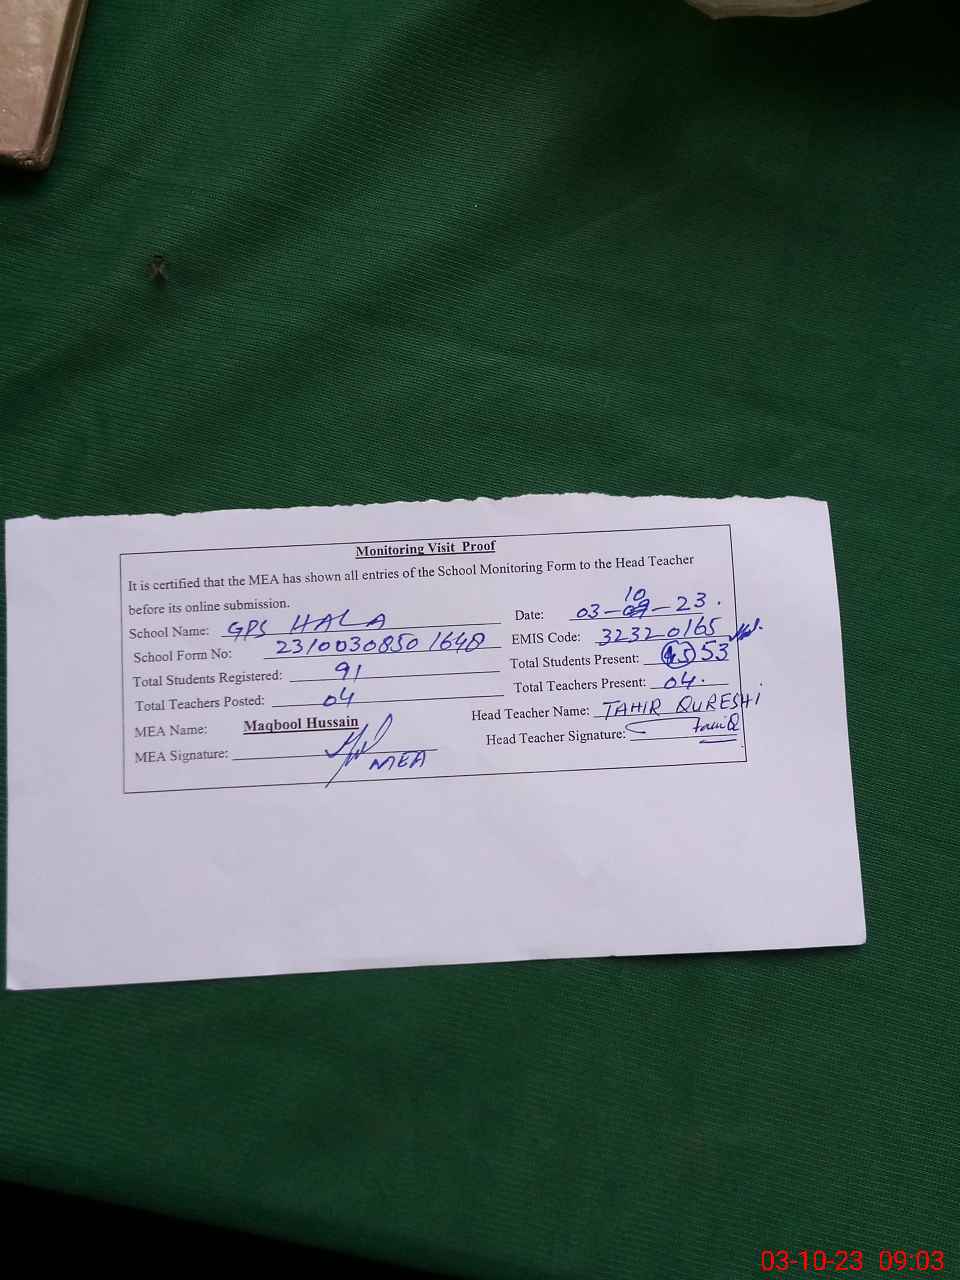 Monitoring Visit Proof
It is certified that the MEA has shown all entries of the School Monitoring Form to the Head Teacher
before its online submission.
School Name: GPS HALA Date: 03-10-23.
School Form No: 23100308501648 EMIS Code: 32320165
Total Students Registered: 91 Total Students Present: 53
Total Teachers Posted: 04 Total Teachers Present: 04.
MEA Name: Maqbool Hussain Head Teacher Name: TAHIR QURESHI
MEA Signature: MEA Head Teacher Signature:
03-10-23 09:03